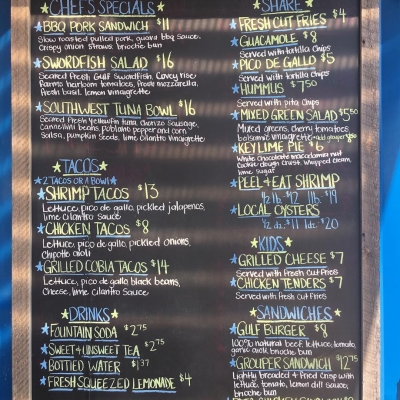 CHEF'S SPECIALS
BBQ PORK SANDWICH $11
Slow roasted pulled pork, guava bbq sauce,
crispy onion straws, brioche bun
SWORDFISH SALAD $16
Seared Fresh Gulf Swordfish,
heirloom tomatoes, fresh mozzarella,
fresh basil, lemon vinaigrette
SOUTHWEST TUNA BOWL $16
Seared Fresh Yellowfin tuna, chorizo sausage,
Cannellini beans, poblano pepper and corn
Salsa, pumpkin seeds, lime cilantro vinaigrette
TACOS
2 TACOS OR A BOWL
SHRIMP TACOS $13
Lettuce, pico de gallo, pickled jalapenos,
lime cilantro sauce
CHICKEN TACOS $8
Lettuce, pico de gallo, pickled onions,
Chipotle aioli
GRILLED COBIA TACOS $14
Lettuce, pico de gallo black beans,
Cheese, lime cilantro sauce
DRINKS
FOUNTAIN SODA $2.75
SWEET & UNSWEET TEA $2.75
BOTTLED WATER $1.37
FRESH SQUEEZED LEMONADE $4
SHARE
FRESH CUT FRIES $4
GUACAMOLE $8
Served with tortilla chips
PICO DE GALLO $5
Served with tortilla chips
HUMMUS $7.50
Served with pita chips
MIXED GREEN SALAD $5.50
Mixed greens, cherry tomatoes,
balsamic vinaigrette
KEY LIME PIE $6
White chocolate macadamia nut
cookie dough crust, whipped cream,
lime sugar
PEEL + EAT SHRIMP
1/2 lb. $12 1 lb. $19
LOCAL OYSTERS
1/2 dz. $11 1 dz. $20
KIDS
GRILLED CHEESE $7
Served with Fresh Cut Fries
CHICKEN TENDERS $7
Served with Fresh Cut Fries
SANDWICHES
GULF BURGER $8
100% natural beef, lettuce, tomato,
garlic aioli, brioche bun
GROUPER SANDWICH $12.75
Lightly breaded + fried crisp with
lettuce, tomato, lemon dill sauce,
brioche bun